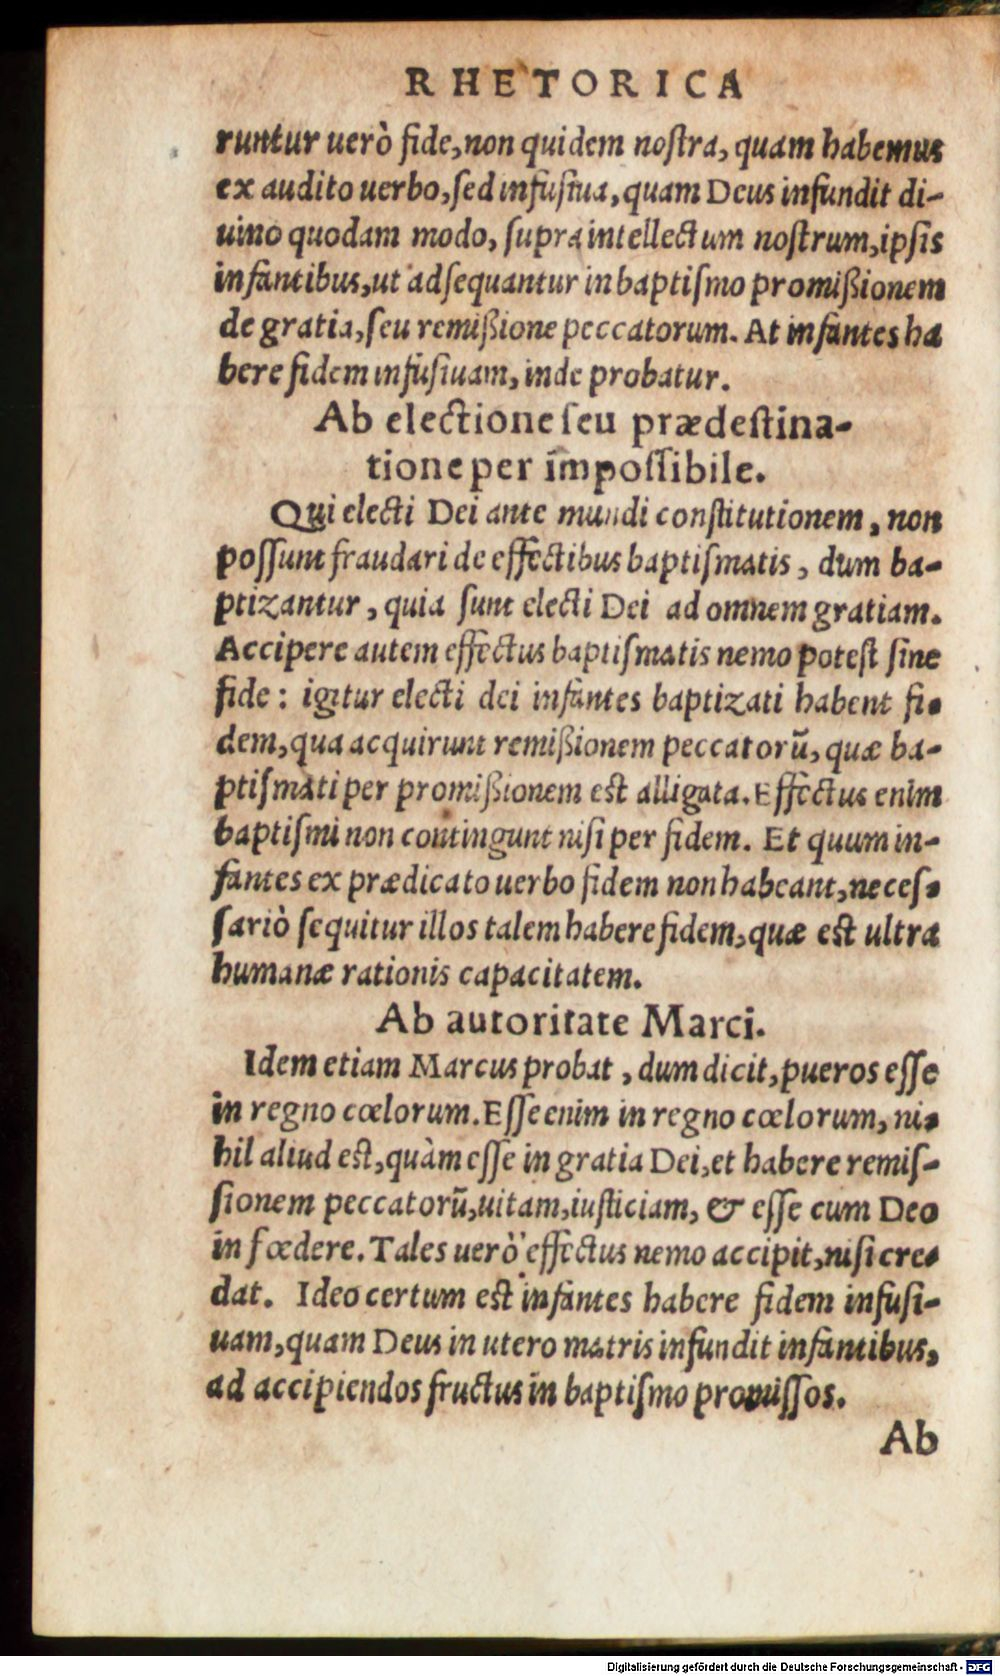 RHETORICA
runtur uerò fide, non quidem noſtra, quam habemus
ex audito uerbo, ſed infuſiua, quam Deus infundit di-
uino quodam modo, ſupra intellectum noſtrum, ipſis
infantibus, ut adſequantur in baptiſmo promißionem
de gratia, ſeu remißione peccatorum. At infantes ha
bere fidem infuſiuam, inde probatur.
Ab electione ſeu prædeſtina-
tione per impoſſibile.
Qui electi Dei ante mundi conſtitutionem, non
poſſunt fraudari de effectibus baptiſmatis, dum ba-
ptizantur, quia ſunt electi Dei ad omnem gratiam.
Accipere autem effectus baptiſmatis nemo poteſt ſine
fide: igitur electi dei infantes baptizati habent fi-
dem, qua acquirunt remißionem peccatorũ, quæ ba-
ptiſmati per promißionem eſt alligata. Effectus enim
baptiſmi non contingunt niſi per fidem. Et quum in-
fantes ex prædicato uerbo fidem non habeant, neceſ-
ſariò ſequitur illos talem habere fidem, quæ eſt ultra
humanæ rationis capacitatem.
Ab autoritate Marci.
Idem etiam Marcus probat, dum dicit, pueros eſſe
in regno cœlorum. Eſſe enim in regno cœlorum, ni-
hil aliud eſt, quàm eſſe in gratia Dei, et habere remiſ-
ſionem peccatorũ, uitam, iuſticiam, & eſſe cum Deo
in fœdere. Tales uerò effectus nemo accipit, niſi cre-
dat. Ideo certum eſt infantes habere fidem infuſi-
uam, quam Deus in utero matris infundit infantibus,
ad accipiendos fructus in baptiſmo promiſſos.
Ab
Digitalisierung gefördert durch die Deutsche Forschungsgemeinschaft - DFG